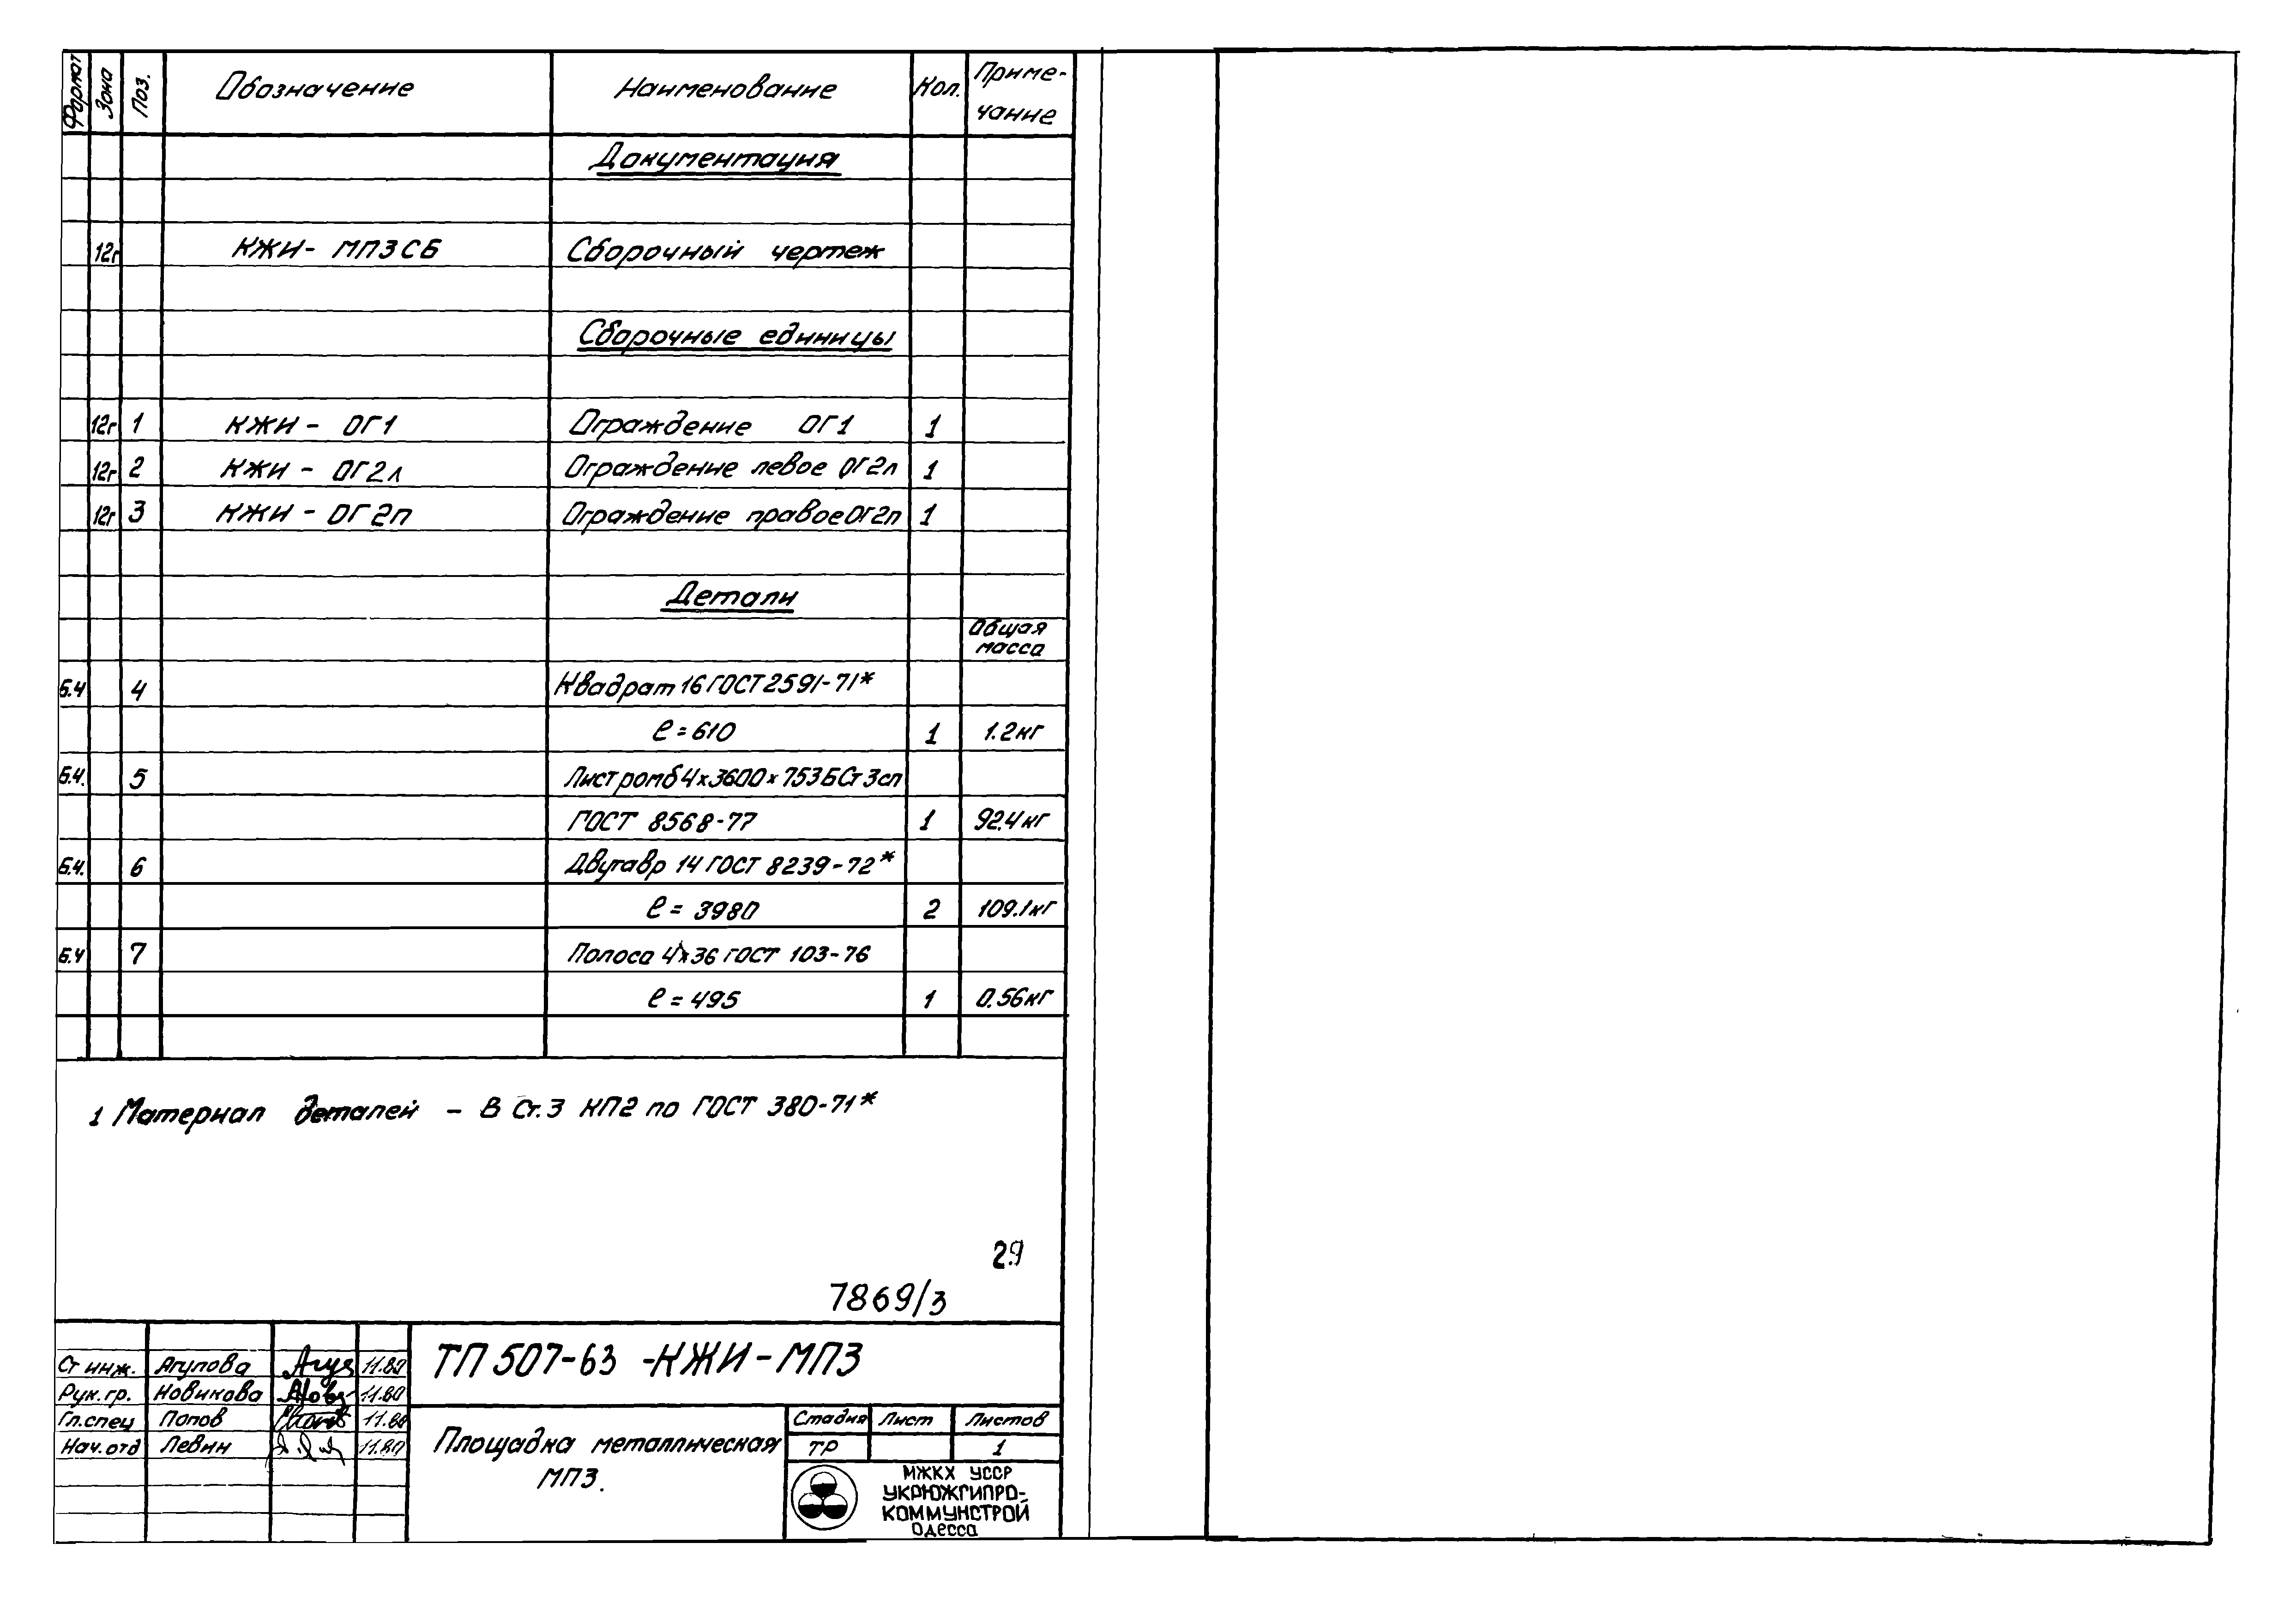 Формат Зона Поз. Обозначение Наименование Кол. Приме-
чание
Документация
12г КЖИ- МП3 СБ Сборочный чертеж
Сборочные единицы
12г 1 КЖИ - ОГ1 Ограждение ОГ1 1
12г 2 КЖИ - ОГ2л Ограждение левое ОГ2л 1
12г 3 КЖИ - ОГ2п Ограждение правое ОГ2п 1
Детали
Общая
масса
Б.Ч 4 Квадрат 16 ГОСТ 2591-71*
ℓ=610 1 1.2кг
Б.Ч. 5 Лист ромб 4х3600х753 БСт3сп
ГОСТ 8568-77 1 92.4кг
Б.Ч. 6 Двутавр 14 ГОСТ 8239-72*
ℓ= 3980 2 109.1кг
Б.Ч 7 Полоса 4х36 ГОСТ 103-76
ℓ=495 1 0.56кг
1 Материал деталей - В Ст.3 КП2 по ГОСТ 380-71*
29
7869/3
ТП 507-63 -КЖИ-МП3
Ст инж. Агупова 11.80
Рук.гр. Новикова 11.80
Гл.спец Попов 11.80
Нач.отд Левин 11.80
Площадка металлическая
МП3.
Стадия Лист Листов
ТР 1
МЖКХ УССР
УКРЮЖГИПРО-
КОММУНСТРОЙ
Одесса